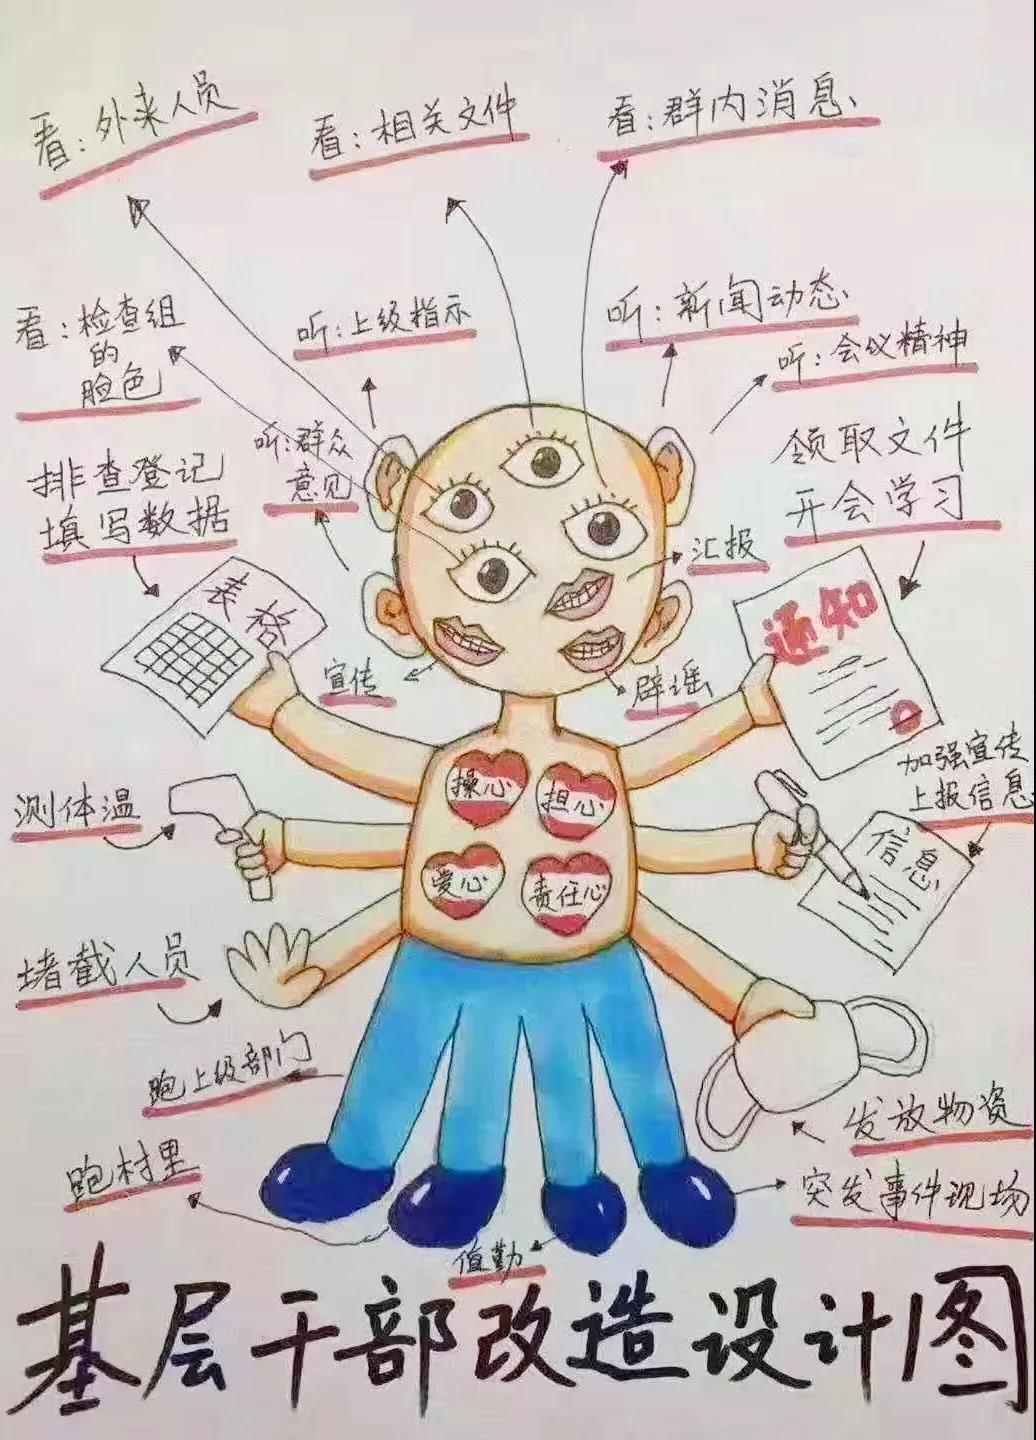 看:外来人员
看:相关文件
看:群内消息
看:检查组
的
脸色
听:上级指示
听:新闻动态
听:会议精神
听:群众
意见
排查登记
填写数据
领取文件
开会学习
汇报
表格
通知
宣传
辟谣
操心
担心
爱心
责任心
测体温
加强宣传
上报信息
信息
堵截人员
跑上级部门
发放物资
跑村里
突发事件现场
值勤
基层干部改造设计图